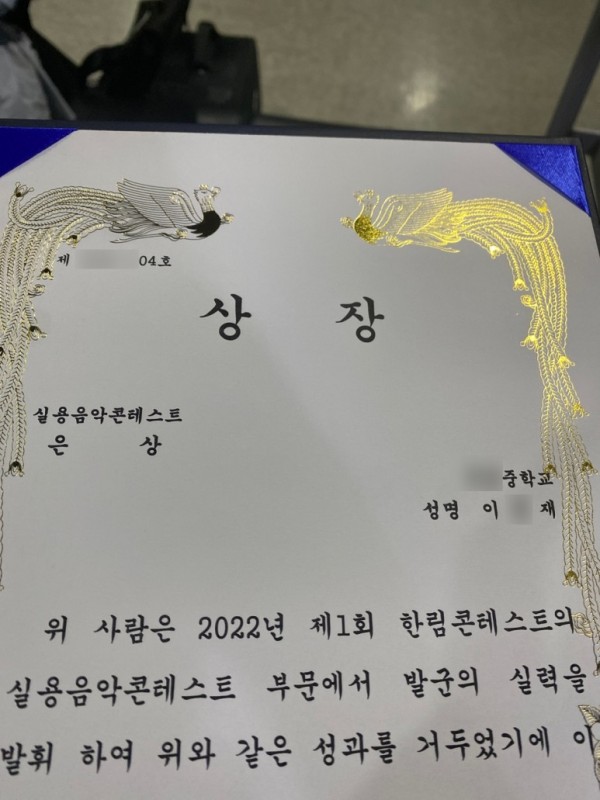 제 04호
상 장
실용음악콘테스트
은 상
중학교
성명 이 재
위 사람은 2022년 제1회 한림콘테스트의
실용음악콘테스트 부문에서 발군의 실력을
발휘 하여 위와 같은 성과를 거두었기에 이